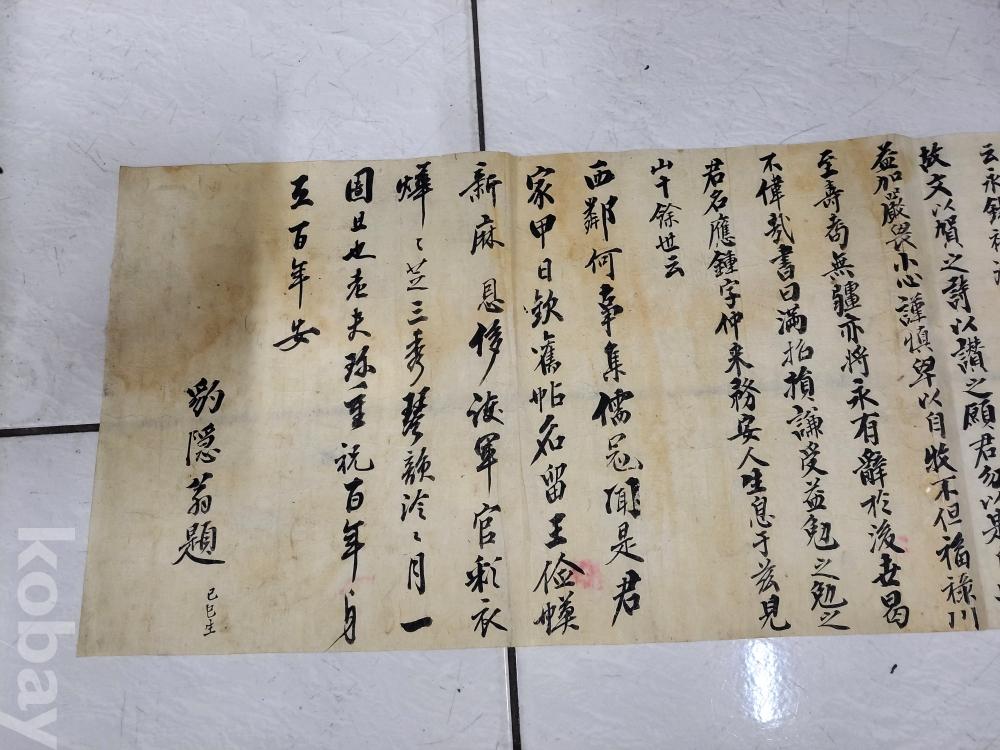 云永錫
故文以賀之詩以讃之願君勿以是
益加嚴畏小心謹愼卑以自牧不但福祿川
至壽耉無疆亦將永有辭於後世曷
不偉哉書曰滿招損謙受益勉之勉之
君名應鍾字仲來務安人生息于玆見
山千餘世云
西鄰何幸集儒冠聞是君
家甲日欽舊帖名留王儉幙
新麻恩侈海軍官彩衣
燁〻芝三秀琴韻泠〻月一
團且也老夫珎重祝百年身
五百年安
豹隱翁題
己巳生
kobay